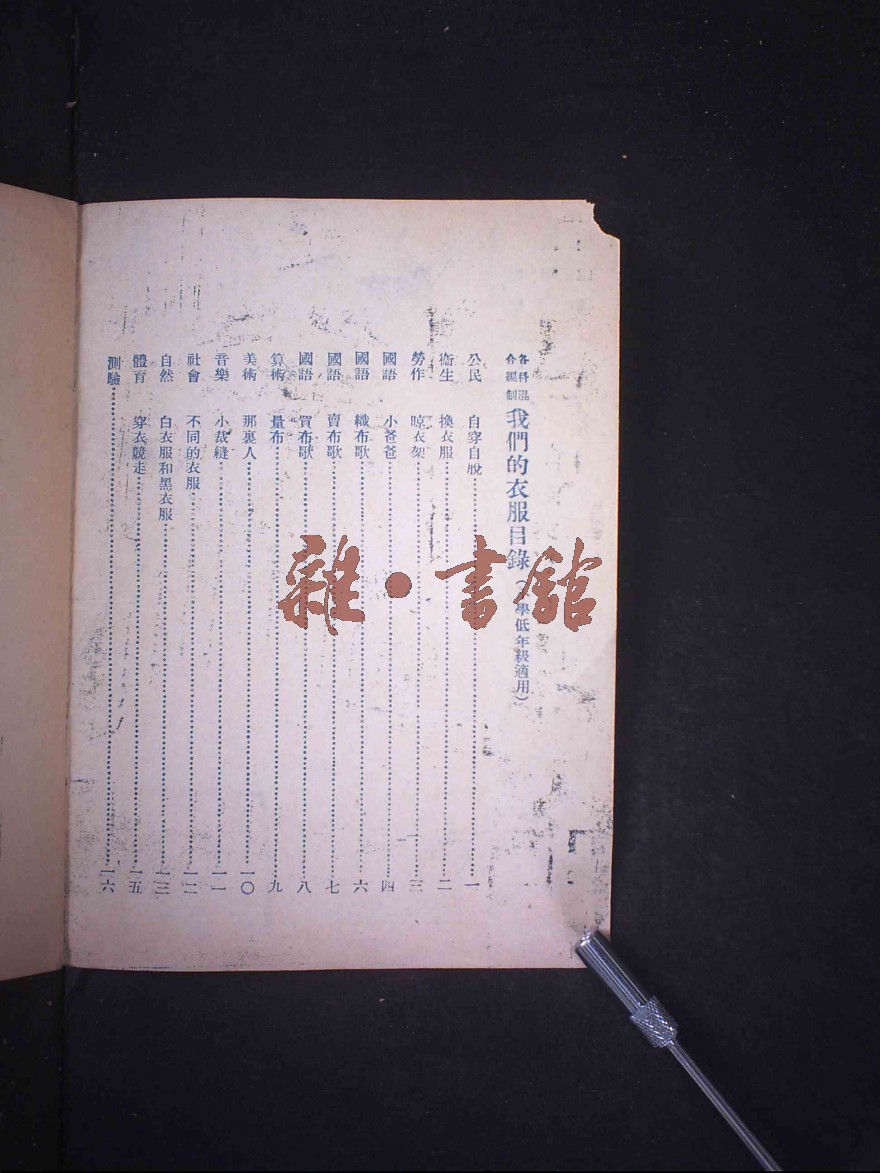 各科混合編制 我們的衣服目錄（ 學低年級適用）
公民 自穿自脫 一
衞生 換衣服 二
勞作 晾衣架 三
國語 小爸爸 四
國語 織布歌 六
國語 賣布歌 七
國語 買布歌 八
算術 量布 九
美術 那裏人 一〇
音樂 小裁縫 一一
社會 不同的衣服 一二
自然 白衣服和黑衣服 一三
體育 穿衣競走 一五
測驗 一六
雜·書館